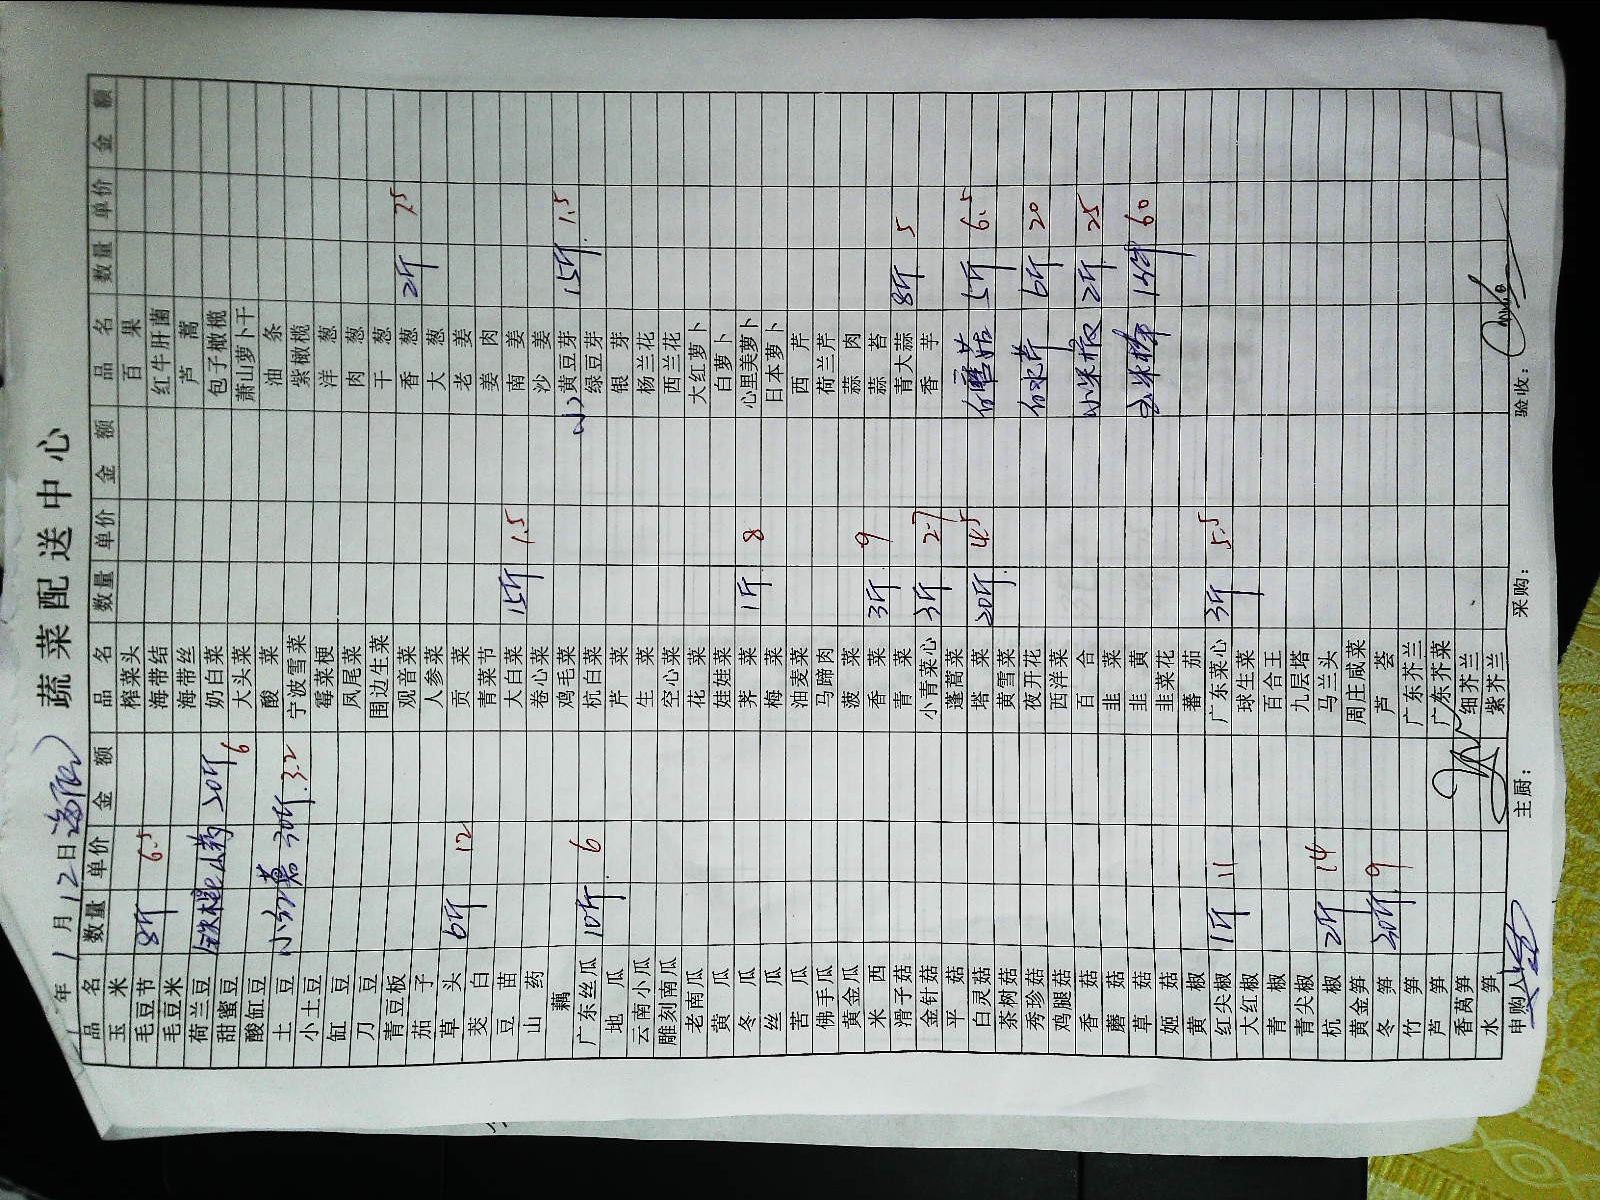 蔬菜配送中心
年1月12日
品名 数量 单价 金额 品名 数量 单价 金额 品名 数量 单价 金额
玉米 榨菜头 百果
毛豆节 8斤 6.5 海带结 红牛肝菌
毛豆米 海带丝 芦蒿
荷兰豆 铁棍山药 20斤 6 奶白菜 包子橄榄
甜蜜豆 大头菜 萧山萝卜干
酸缸豆 酸菜 油条
土豆 小红薯 30斤 3.2 宁波雪菜 紫橄榄
小土豆 霉菜梗 洋葱
缸豆 凤尾菜 肉葱
刀豆 围边生菜 干葱
青豆板 观音菜 香葱 2斤 7.5
茄子 人参菜 大葱
草头 6斤 12 贡菜 老姜
茭白 青菜节 姜肉
豆苗 大白菜 15斤 1.5 南姜
山药 卷心菜 沙姜
藕 鸡毛菜 小黄豆芽 15斤 1.5
广东丝瓜 10斤 6 杭白菜 绿豆芽
地瓜 芹菜 银芽
云南小瓜 生菜 杨兰花
雕刻南瓜 空心菜 西兰花
老南瓜 花菜 大红萝卜
黄瓜 娃娃菜 白萝卜
冬瓜 荠菜 1斤 8 心里美萝卜
丝瓜 梅菜 日本萝卜
苦瓜 油麦菜 西芹
佛手瓜 马蹄肉 荷兰芹
黄金瓜 菠菜 蒜肉
米西 香菜 3斤 9 蒜苔
滑子菇 青菜 青大蒜 8斤 5
金针菇 小青菜心 3斤 2.7 香芋
平菇 蓬蒿菜
白灵菇 塔菜 20斤 4.5 白蘑菇 5斤 6.5
茶树菇 黄雪菜
秀珍菇 夜开花 白水芹 6斤 20
鸡腿菇 西洋菜
香菇 百合 小米椒 2斤 25
蘑菇 韭菜
草菇 韭黄 60
姬菇 韭菜花
黄椒 蕃茄
红尖椒 1斤 11 广东菜心 3斤 5.5
大红椒 球生菜
青椒 百合王
青尖椒 九层塔
杭椒 2斤 14 马兰头
黄金笋 周庄咸菜
冬笋 30斤 9 芦荟
竹笋 广东芥兰
芦笋 广东芥菜
香莴笋 细芥兰
水笋 紫芥兰
申购人: 主厨: 采购: 验收: